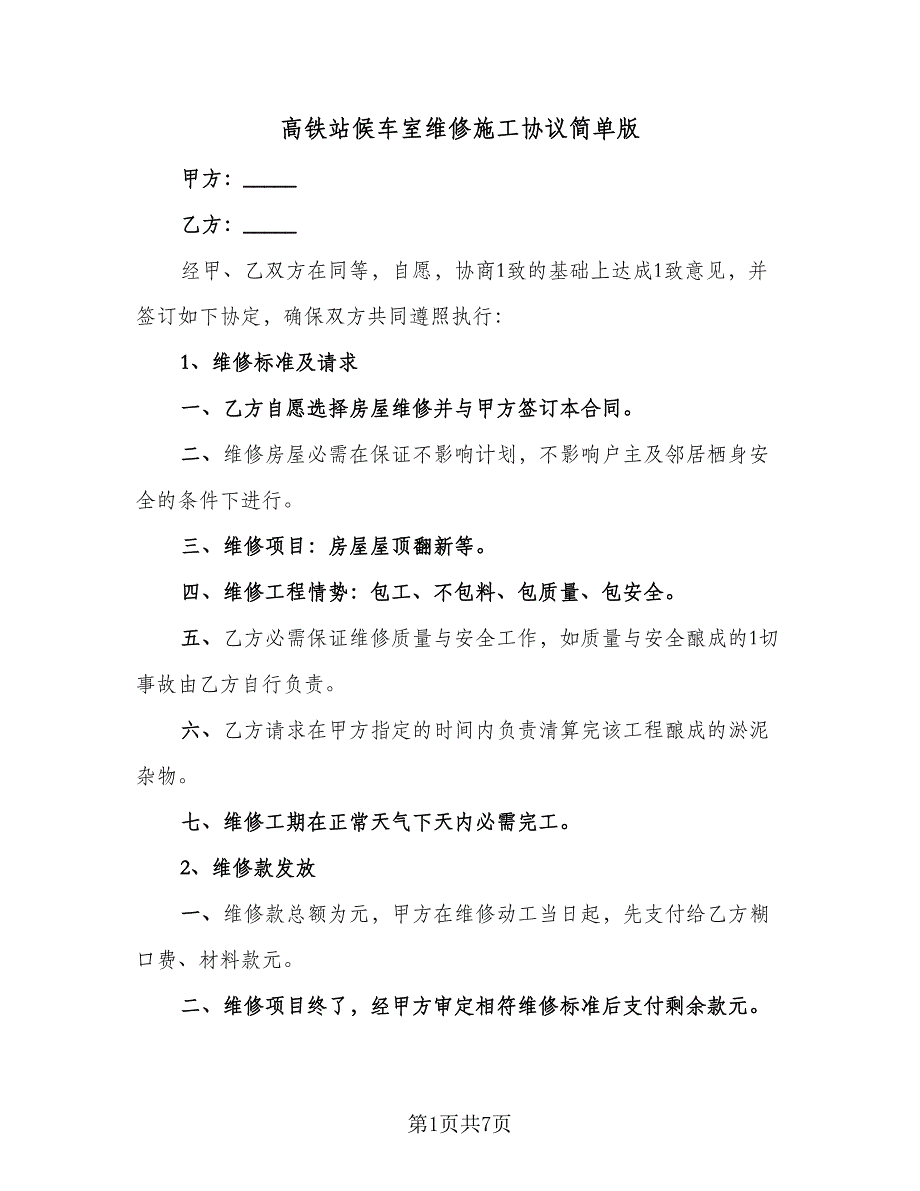 高铁站候车室维修施工协议简单版
甲方：_____
乙方：_____
经甲、乙双方在同等，自愿，协商1致的基础上达成1致意见，并
签订如下协定，确保双方共同遵照执行：
1、维修标准及请求
一、乙方自愿选择房屋维修并与甲方签订本合同。
二、维修房屋必需在保证不影响计划，不影响户主及邻居栖身安
全的条件下进行。
三、维修项目：房屋屋顶翻新等。
四、维修工程情势：包工、不包料、包质量、包安全。
五、乙方必需保证维修质量与安全工作，如质量与安全酿成的1切
事故由乙方自行负责。
六、乙方请求在甲方指定的时间内负责清算完该工程酿成的淤泥
杂物。
七、维修工期在正常天气下天内必需完工。
2、维修款发放
一、维修款总额为元，甲方在维修动工当日起，先支付给乙方糊
口费、材料款元。
二、维修项目终了，经甲方审定相符维修标准后支付剩余款元。
第1页共7页